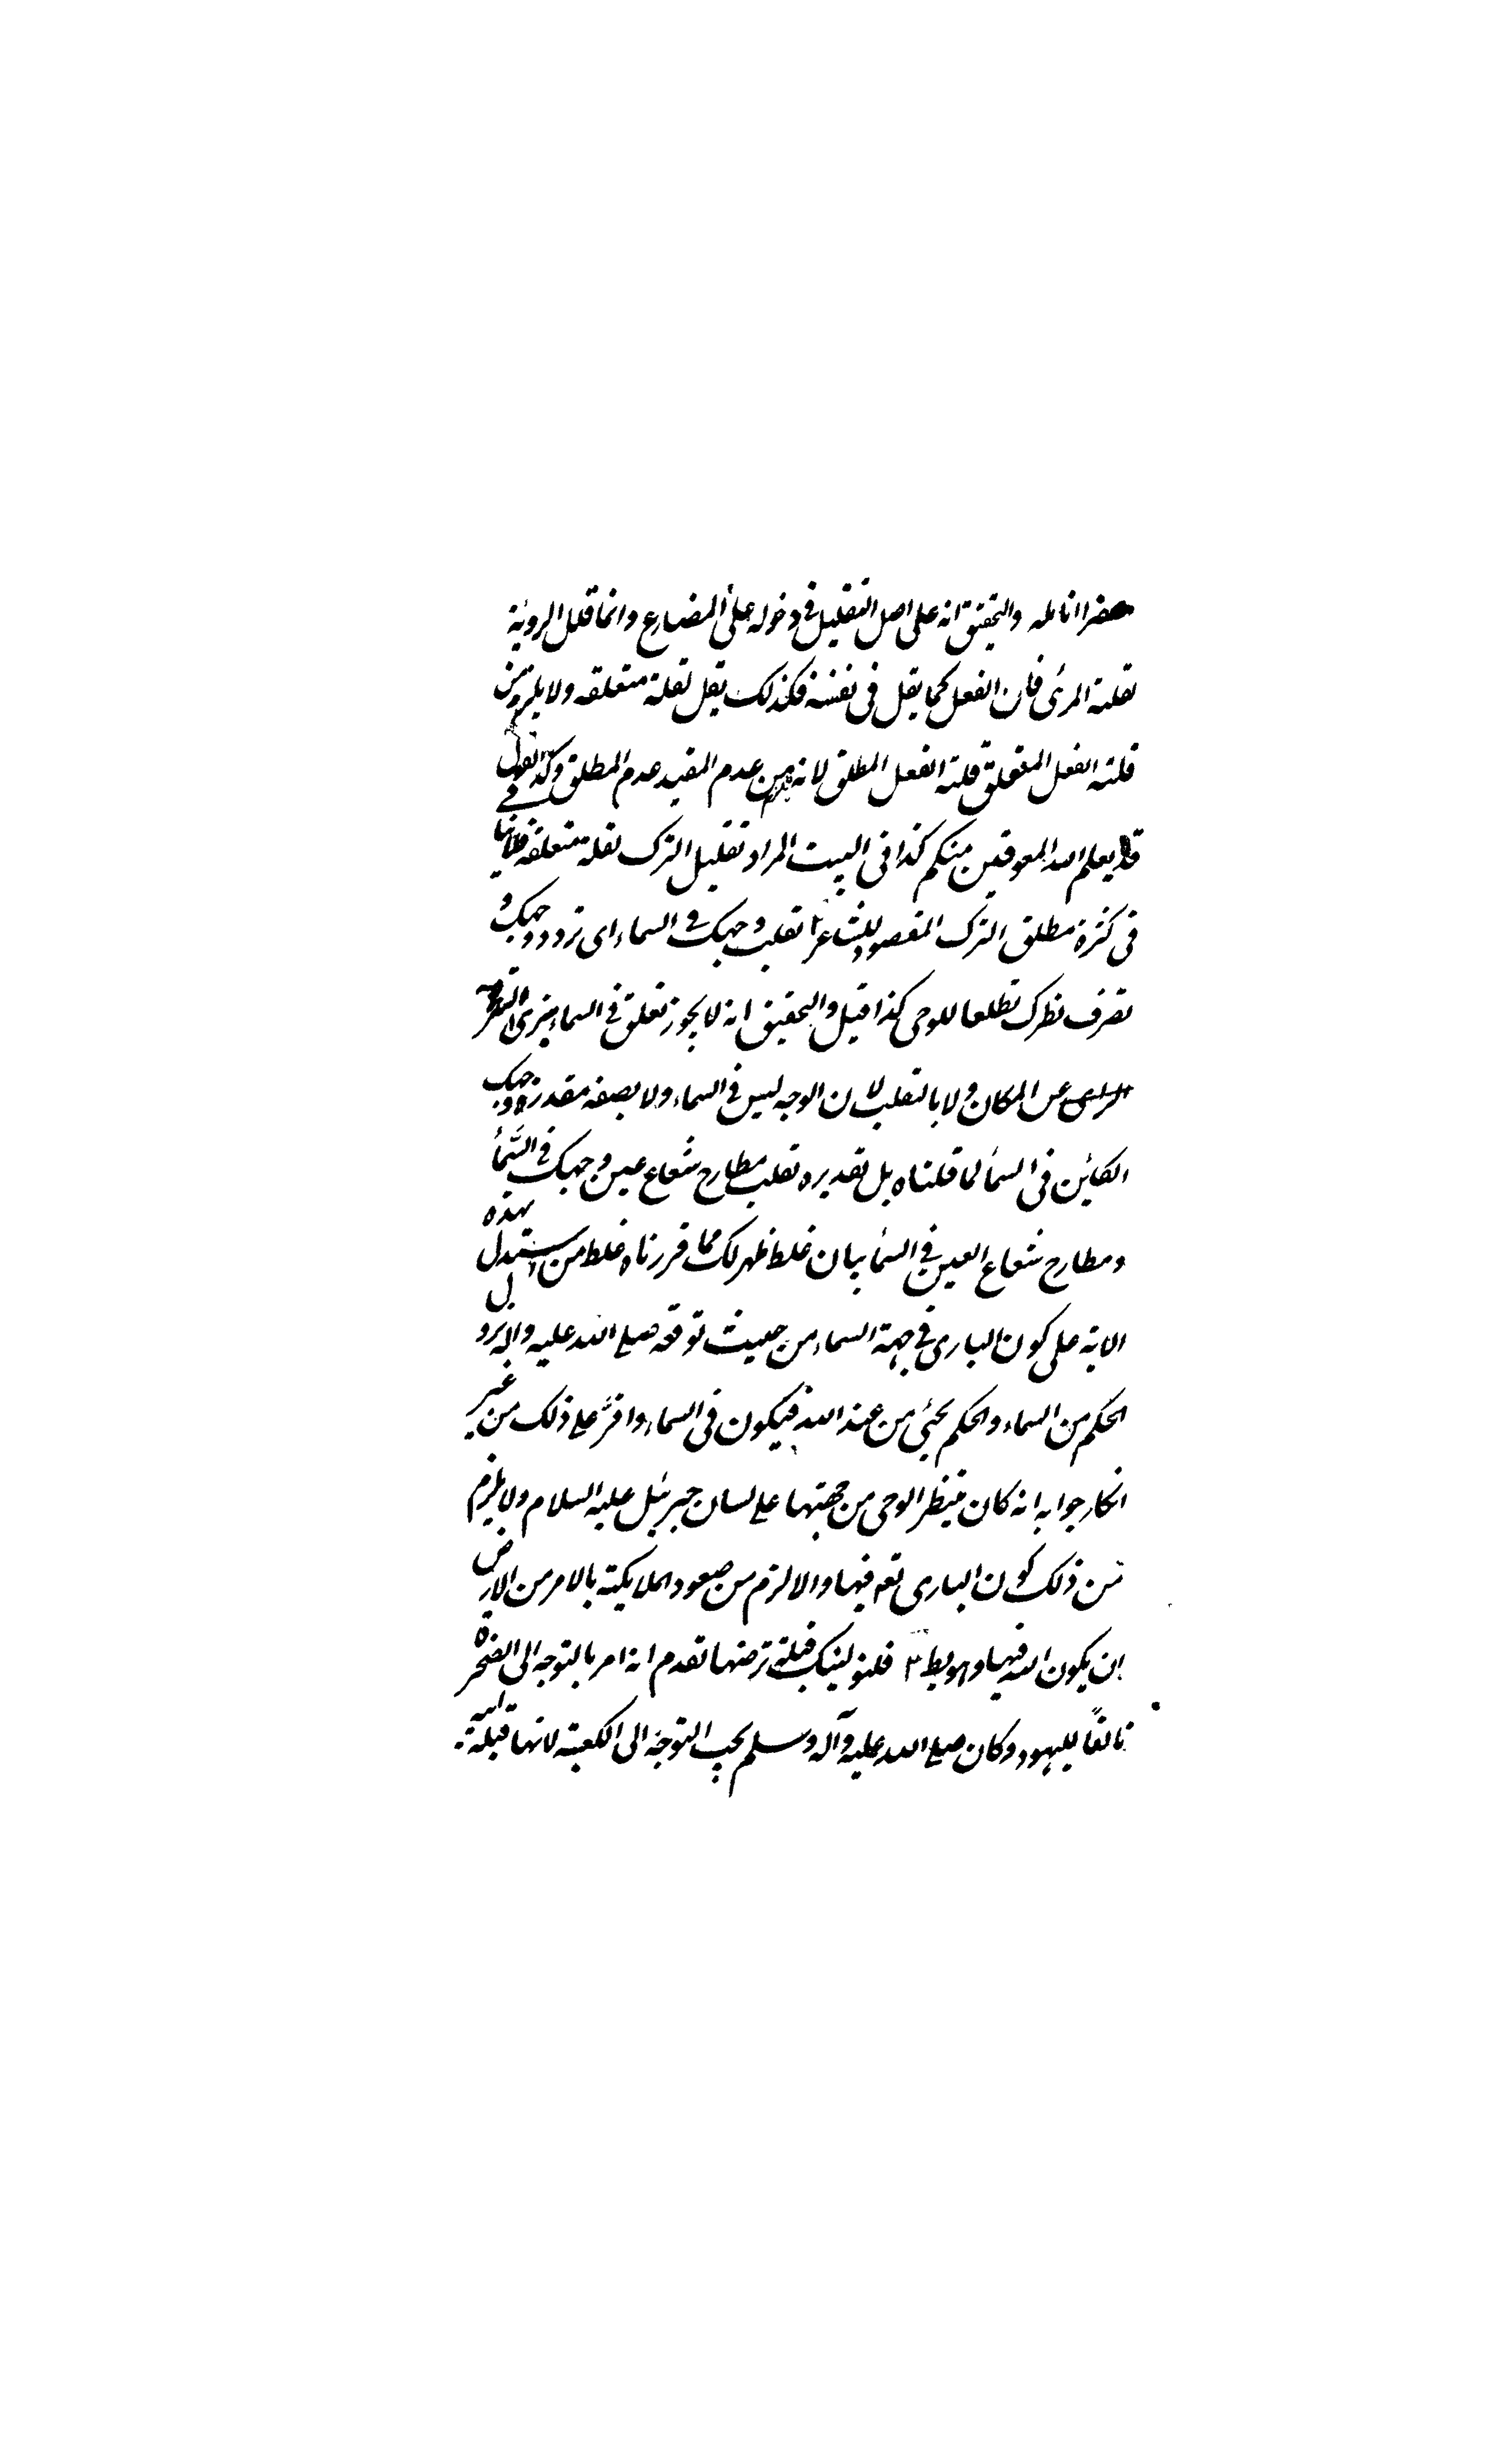 مصفرا انامله والتحقيق انه على اصل التقليل فى دخوله على المضارع وانما قلل الروية
لقلة المرئى فان الفعل كما يقل فى نفسه فكذلك يقل لقلة متعلقه ولا يلزم من
قلة الفعل المتعلق قلة الفعل المطلق لانه من عدم المقيد عدم المطلق وكذا القول فى
قد يعلم الله المعوقين منكم كذا فى البيت المراد تقليل الترك لقلة متعلقه
فى كثرة مطلق الترك المقصود للشاعر تقلب وجهك فى السماء اى تردد وجهك و
تصرف نظرك تطلعا للوحى كذا قيل والتحقيق انه لا يجوز تعلق فى السماء بنرى
عن المكان ولا بالتقلب لان الوجه ليس فى السماء ولا بصفة مقدرة وجهك
الكائن فى السماء لما قلناه بل تقديره تقلب مطارح شعاع عين وجهك فى السماء
ومطارح شعاع العين فى السماء بيان غلط ظهر لك مما قررناه غلط من استدل بهذه
الاية على كون البارى فى جهة السماء من حيث توقعه صلى الله عليه واله نزول
الحكم من السماء والحكم يجئ من عند الله فيكون فى السماء واقر على ذلك من غير
انكار جوابه انه كان ينتظر الوحى من جهتها على لسان جبرئيل عليه السلام ولا يلزم
من ذلك كون البارى تعه فيها والا لزم من صعود الملايكة بالامر من الارض
ان يكون الله فيها وهو بط ٣ فلنولينك قبلة ترضها تقدم انه امر بالتوجه الى الصخرة
تالفا لليهود وكان صلى الله عليه وآله وسلم يحب التوجه الى الكعبة لانها قبلة ابيه